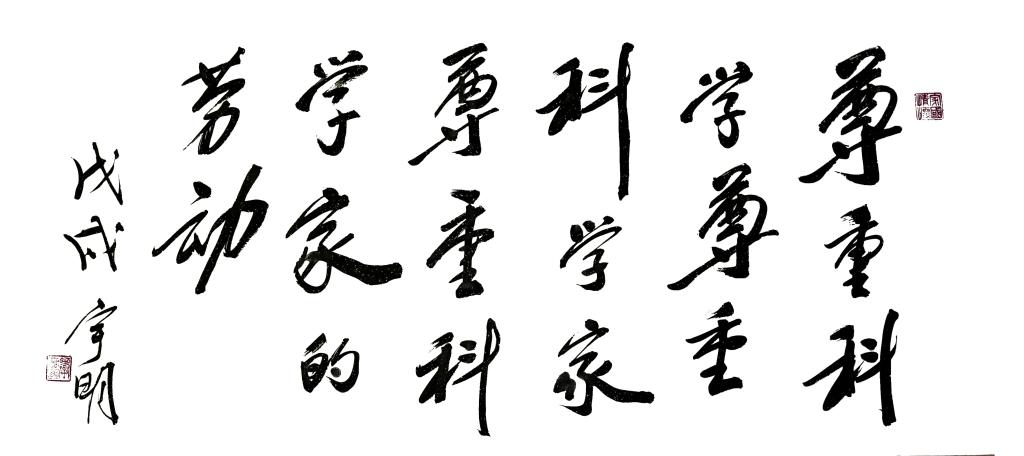 尊重科
学尊重
科学家
尊重科
学家的
劳动
戊戌宇明